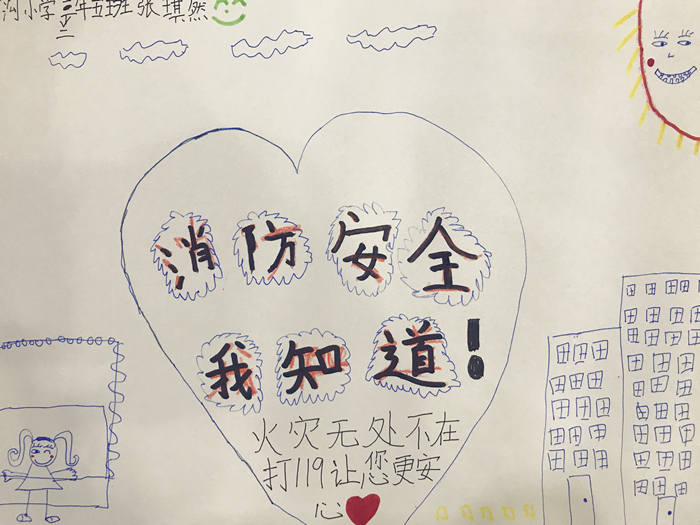 沟小学二年五班张琪然
消防安全
我知道!
火灾无处不在
打119让您更安
心